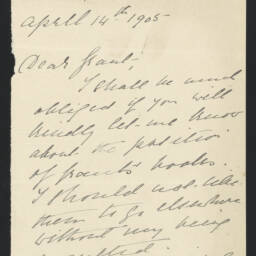 April 14th 1905
Dear Grant,
I shall be much
obliged if you will
kindly let me know
about the position
of books.
I should not like
them to go elsewhere
without my being